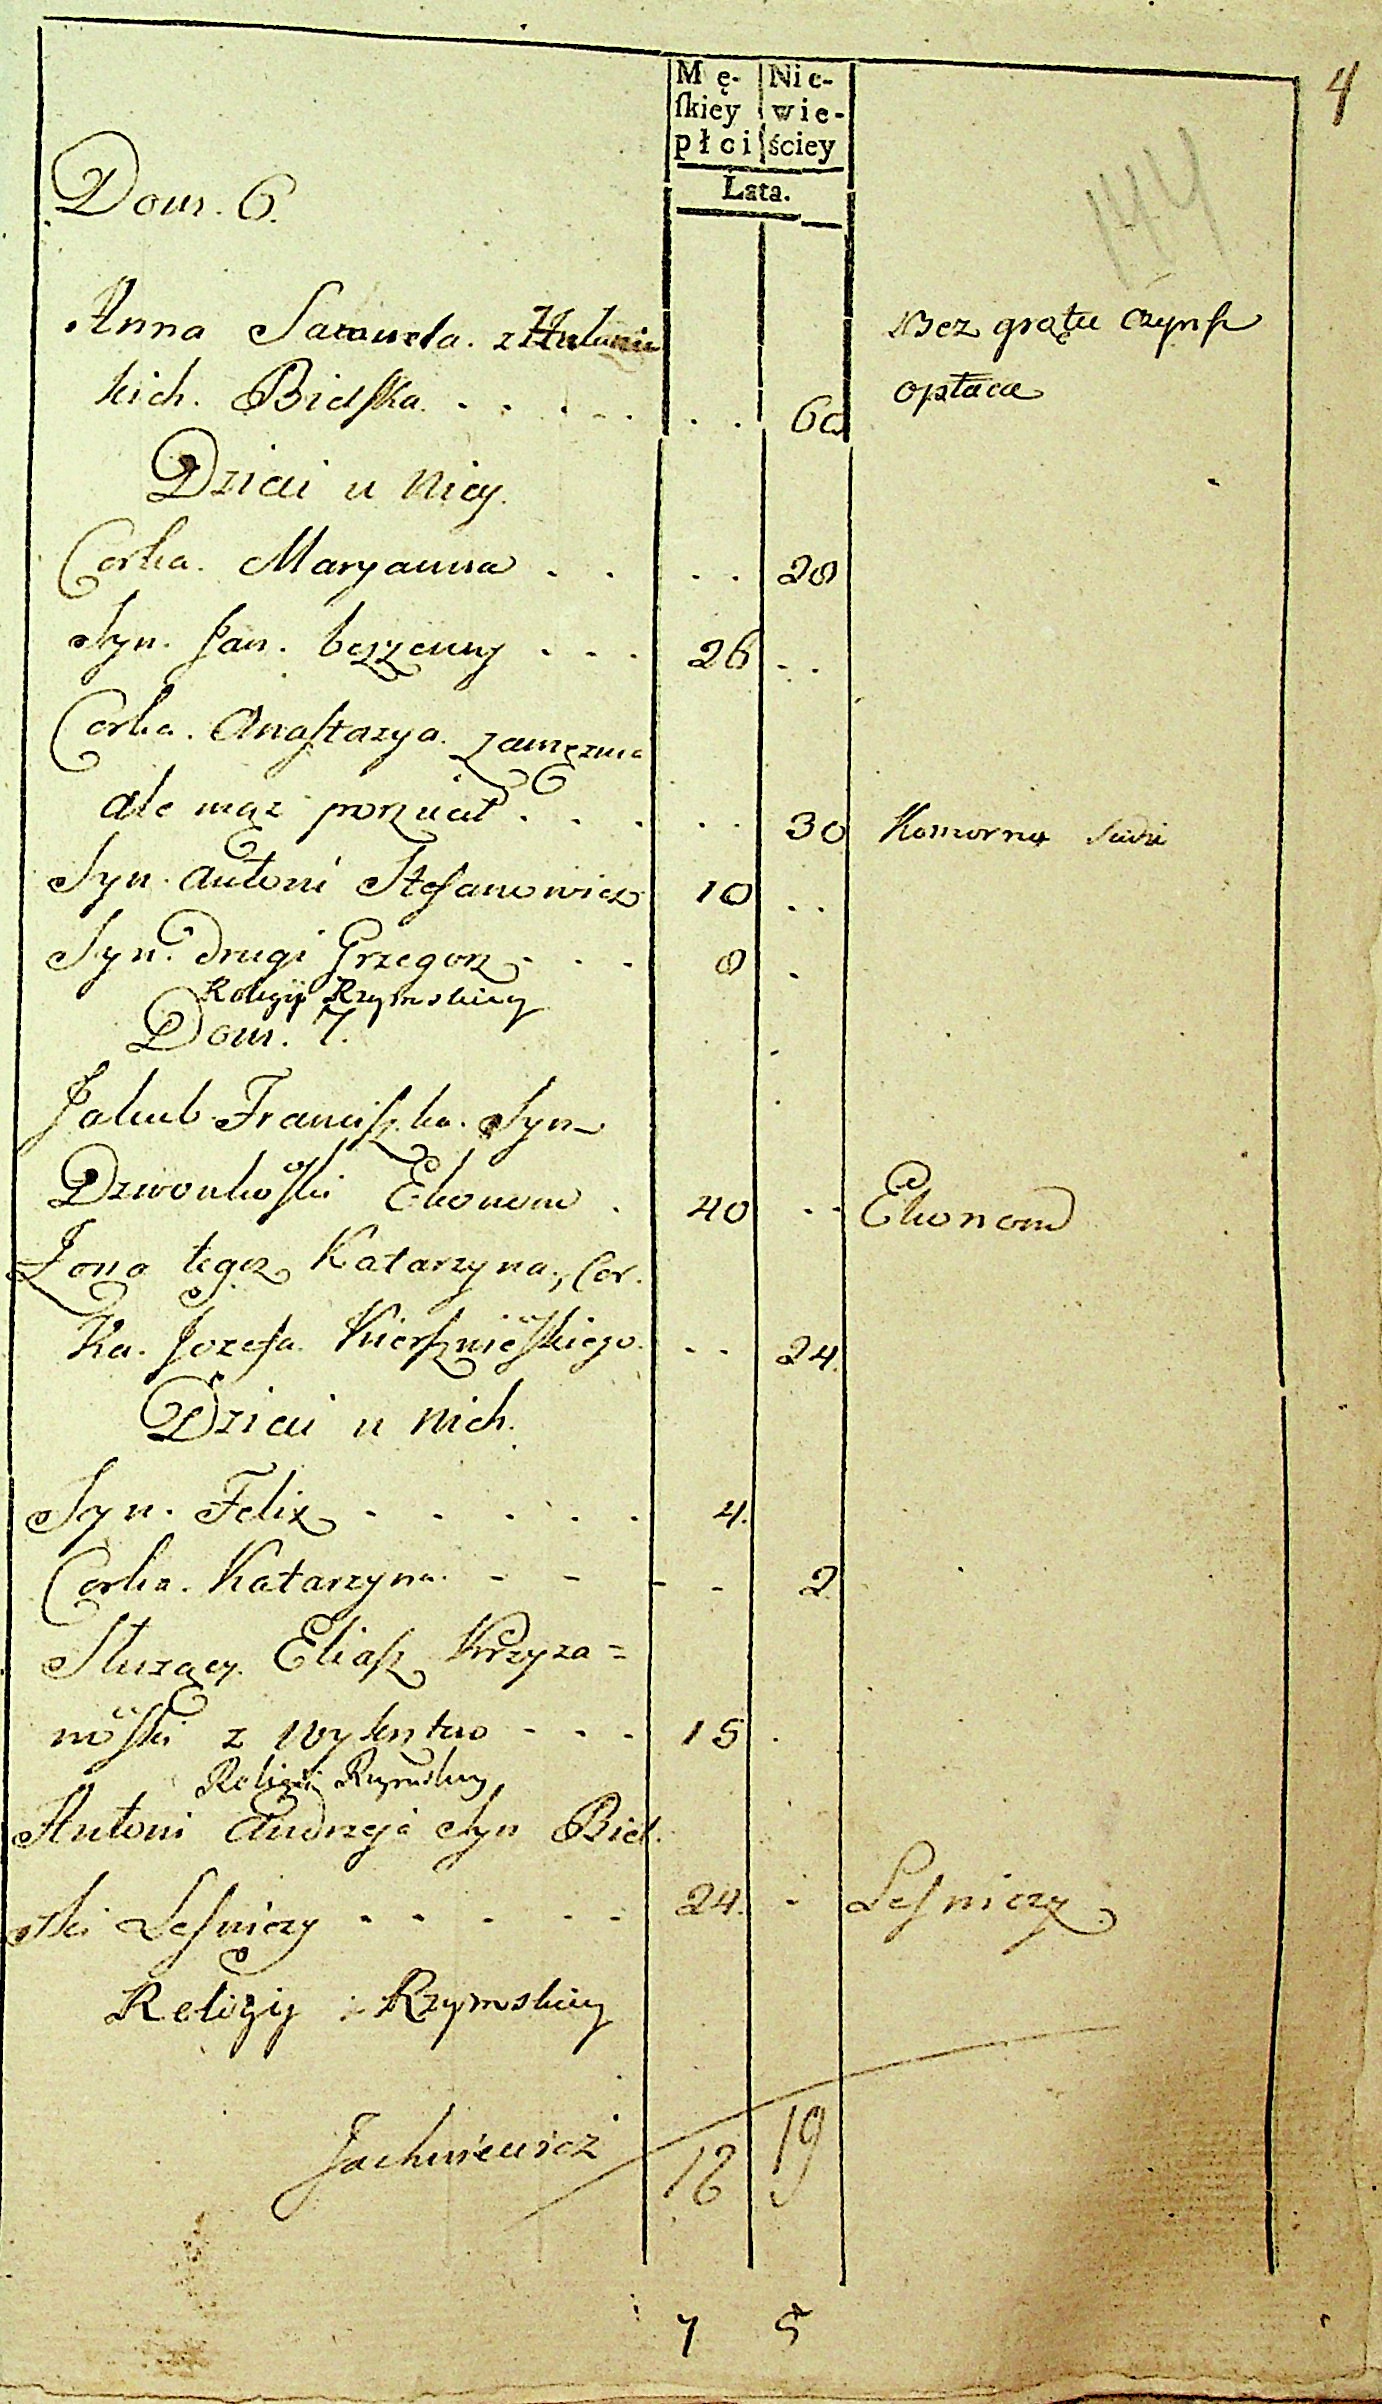 4
Mę- Nie-
ſkiey wie-
płci ściey
Lata.
144
Dom. 6.
Anna Samuela. z Hulanic
Bez grątu czynsz
kich. Bielska. . . . . . . . 60
opłaca
Dzieci u niey.
Corka. Maryanna . . . . 20
Syn. Jan. bezzenny . . . 26 . .
Corka. Anastazya. zamęzna
ale mąz porzucił . . . . . 30 Komorną siedzi
Syn. Antoni Stefanowicz 10 . .
Syn. drugi Grzegorz . . . 8 .
Religij Rzymskiey
Dom. 7.
Jakub Franciszka. Syn
Dzwonkoski Ekonom . 40 . . Ekonom
Zona tegoz Katarzyna, Cor.
ka. Jozefa. Kiersznieskiego. . . 24.
Dzieci u nich.
Syn. Felix . . . . . 4.
Corka. Katarzyna. - - - - 2
Słuzący. Eliasz Krzyza=
noski z - - - 15 .
Religij Rzymskiey
Antoni Andrzeja Syn Biel.
ski Leśniczy - - - - - 24. - Leśniczy
Religij Rzymskiey
Jachniewicz
18 19
7 5